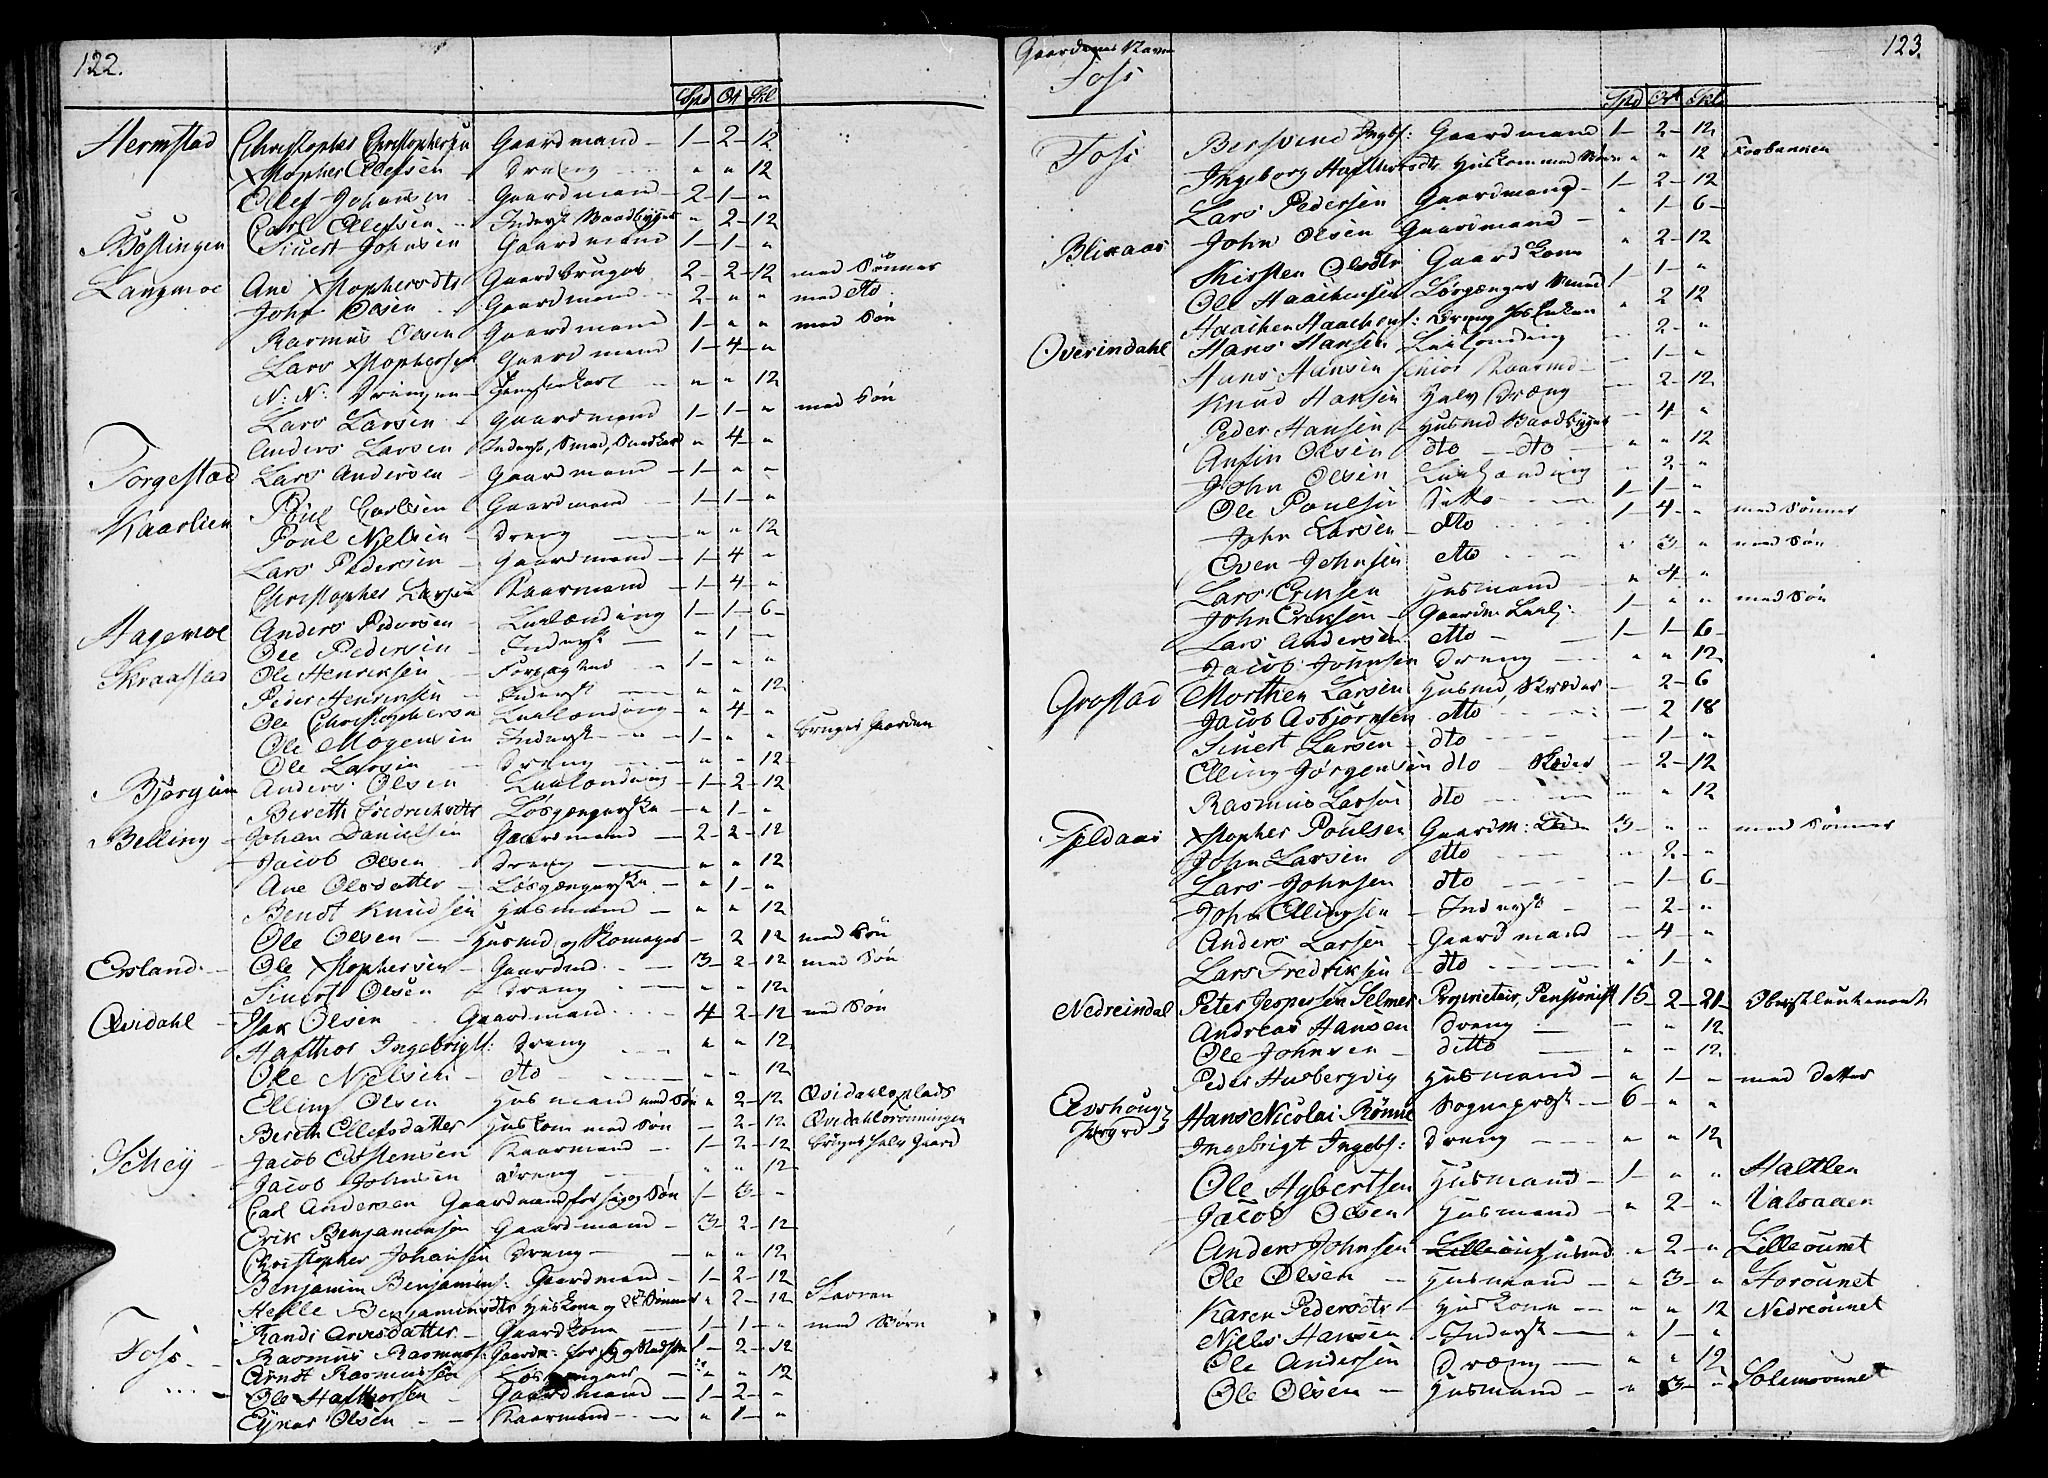 122.
Spd Ort Skl
Hermstad Christopher Christophersen Gaardmand 1 2 12
Xstopher Olefsen Dreng " " 12
Ellef Johansen Gaardmand 2 1 "
Carl Olefsen Inderst Baadbygger " 2 12
Røstingen Siuert Johnsen Gaardmand 1 1 "
Langmoe Ane Xstophersdtr Gaardbruger 2 2 12 med Sønner
John Olsen Gaardmand 2 " " med dto
Rasmus Olsen Gaardmand 1 " " med Søn
Lars Xstophersen Gaardmand 1 4 "
N: N: Drengen Tienstekarl " " 12
Lars Larsen Gaardmand 1 1 " med Søn
Anders Larsen Inderst, Smed, Snedker " 4 "
Torgestad Lars Andersen Gaardmand 1 " "
Poul Carlsen Gaardmand 1 1 "
Kaarlien Poul Nielsen Dreng " " 12
Lars Pedersen Gaardmand 1 4 "
Christopher Larsen Kaarmand 1 4 "
Hagemoe Anders Pedersen Leilænding 1 1 6
Ole Pedersen Inderst " 1 "
Skraastad Ole Henriksen Forpagter 1 " "
Peder Henriksen Inderst " " 12
Ole Christophersen Leilænding " 4 "
Ole Mogensen Inderst 1 " " bruger Gaarden
Ole Larsen Dreng " " 12
Bjørgum Anders Olsen Leilænding 1 2 12
Bereth Fredrichsdtr Løsgængerske " 1 "
Belling Johan Danielsen Gaardmand 2 2 12
Jacob Olsen Dreng " " 12
Ane Olsdatter Løsgængerske " 1 "
Bendt Knudsen Husmand " " 12
Ole Olsen Husmd og Skomager 2 12 med Søn
Esland Ole Xstophersen Gaardmd 3 2 12 med Søn
Siuert Olsen Dreng " " 12
Qvidahl Isak Olsen Gaardmand 4 2 12 med Søn
Hafthor Ingebrigts: Dreng " " 12
Ole Nielsen dto " " 12
Elling Olsen Husmand med Søn " 2 12 Qvidahlsplads
Bereth Ellefsdatter Huskone med Søn 2 12 Qvidahlsrønningen
Schey Jacob Carstensen Kaarmand 1 2 12 bruger halv Gaard
Jacob Johnsen Dreng " " 12
Carl Andersen Gaardmand for sig og Søn 1 3 "
Erik Benjaminsen Gaardmand 3 2 12
Christopher Johansen Dreng " " 12
Benjamin Benjamins: Gaardmand 1 2 12
Helle Benjaminsdtr Huskone og Sønner " 2 12 Stavran
Randi Arvesdatter Gaardkone 1 1 " med Børn
Foss Rasmus Rasmuss: Gaardm: for sig og Stedsøn 1 2 12
Arnt Rasmussen Løsgænger " " 12
Ole Hafthorsen Gaardmand 1 2 "
Eynar Olsen Kaarmand " 1 "
Gaardenes Navn 123.
Foss
Spd Ort Skl
Foss Bersvend Ingbs: Gaardmand 1 2 12
Ingeborg Hafthorsdtr Huskone med Børn " " 12 Fosbakken
Lars Pedersen Gaardmand 1 2 12
John Olsen Gaardmand " 1 6
Blikaas Kirsten Olsdtr Gaardkone " 2 12
Ole Haachensen Løsgænger Smed 1 1 "
Haachen Haachens: Dreng hos Enken " 2 12
Overindahl Hans Hansen Leilænding 2 "
Hans Hansen senior Kaarmd 1 "
Knud Hansen Halv Dræng 2 12
Peder Hansen Husmd Baadbygger 4 "
Anfin Olsen dto dto " " 12
John Olsen Leilænding 2 "
Ole Poulsen Ditto 1 1 "
John Larsen dto 1 4 " med Sønner
Even Johnsen dto " 3 " med Søn
Lars Eriksen Husmand " 4 "
John Eriksen Gaardm: Leil: 1 " " med Søn
Lars Andersen dto 1 1 6
Jacob Johnsen Dreng " " 12
Grostad Morthen Larsen Husmd, Skræder 2 6
Jacob Asbjørnsen dto 2 18
Siuert Larsen dto 1 "
Elling Jørgensen dto 2 12
Rasmus Larsen dto " 12
Fieldaas Xstopher Poulsen Gaardm: 3 " " med Sønner
John Larsen dto 2 "
Lars Johnsen dto 1 6
John Ellingsen Inderst 2 "
Anders Larsen Gaardmand 4 "
Lars Fredriksen dto " 1 "
Nedreindal Peter Jespersen Selmer Proprietair, Pensionist 15 2 21 Obristlieutenant
Andreas Hansen Dreng " " 12
Ole Johnsen Ditto " " 12
Peder Husbergvig Husmand " 1 " med Datter
Aurhoug Hans Nicolai Rønne Sognepræst 6 " "
Ingebrigt Ingebs: Dreng " " 12
Ole Hybertsen Husmand 1 " " Haltlen
Jacob Olsen Husmand " 2 " Valsaaen
Anders Johnsen Husmd " 2 " Lilleøunet
Ole Olsen Husmand " 3 " Storøunet
Karen Pedersdtr Huskone " " 12 Nedreøunet
Niels Hansen Inderst " 1 "
Ole Andersen Dræng " " 12
Ole Olsen Husmand " 3 " Solemsøunet